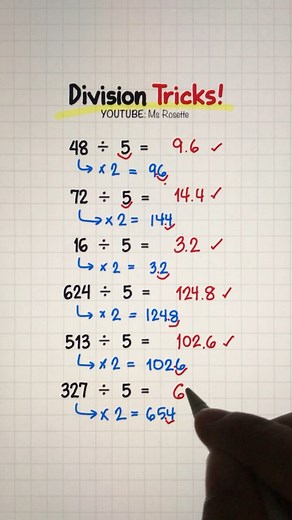 Division Tricks!
YOUTUBE: Ms Rosette
48 ÷ 5 = 9.6 ✓
× 2 = 9.6
72 ÷ 5 = 14.4 ✓
× 2 = 14.4
16 ÷ 5 = 3.2 ✓
× 2 = 3.2
624 ÷ 5 = 124.8 ✓
× 2 = 124.8
513 ÷ 5 = 102.6 ✓
× 2 = 102.6
327 ÷ 5 = 6
× 2 = 65.4